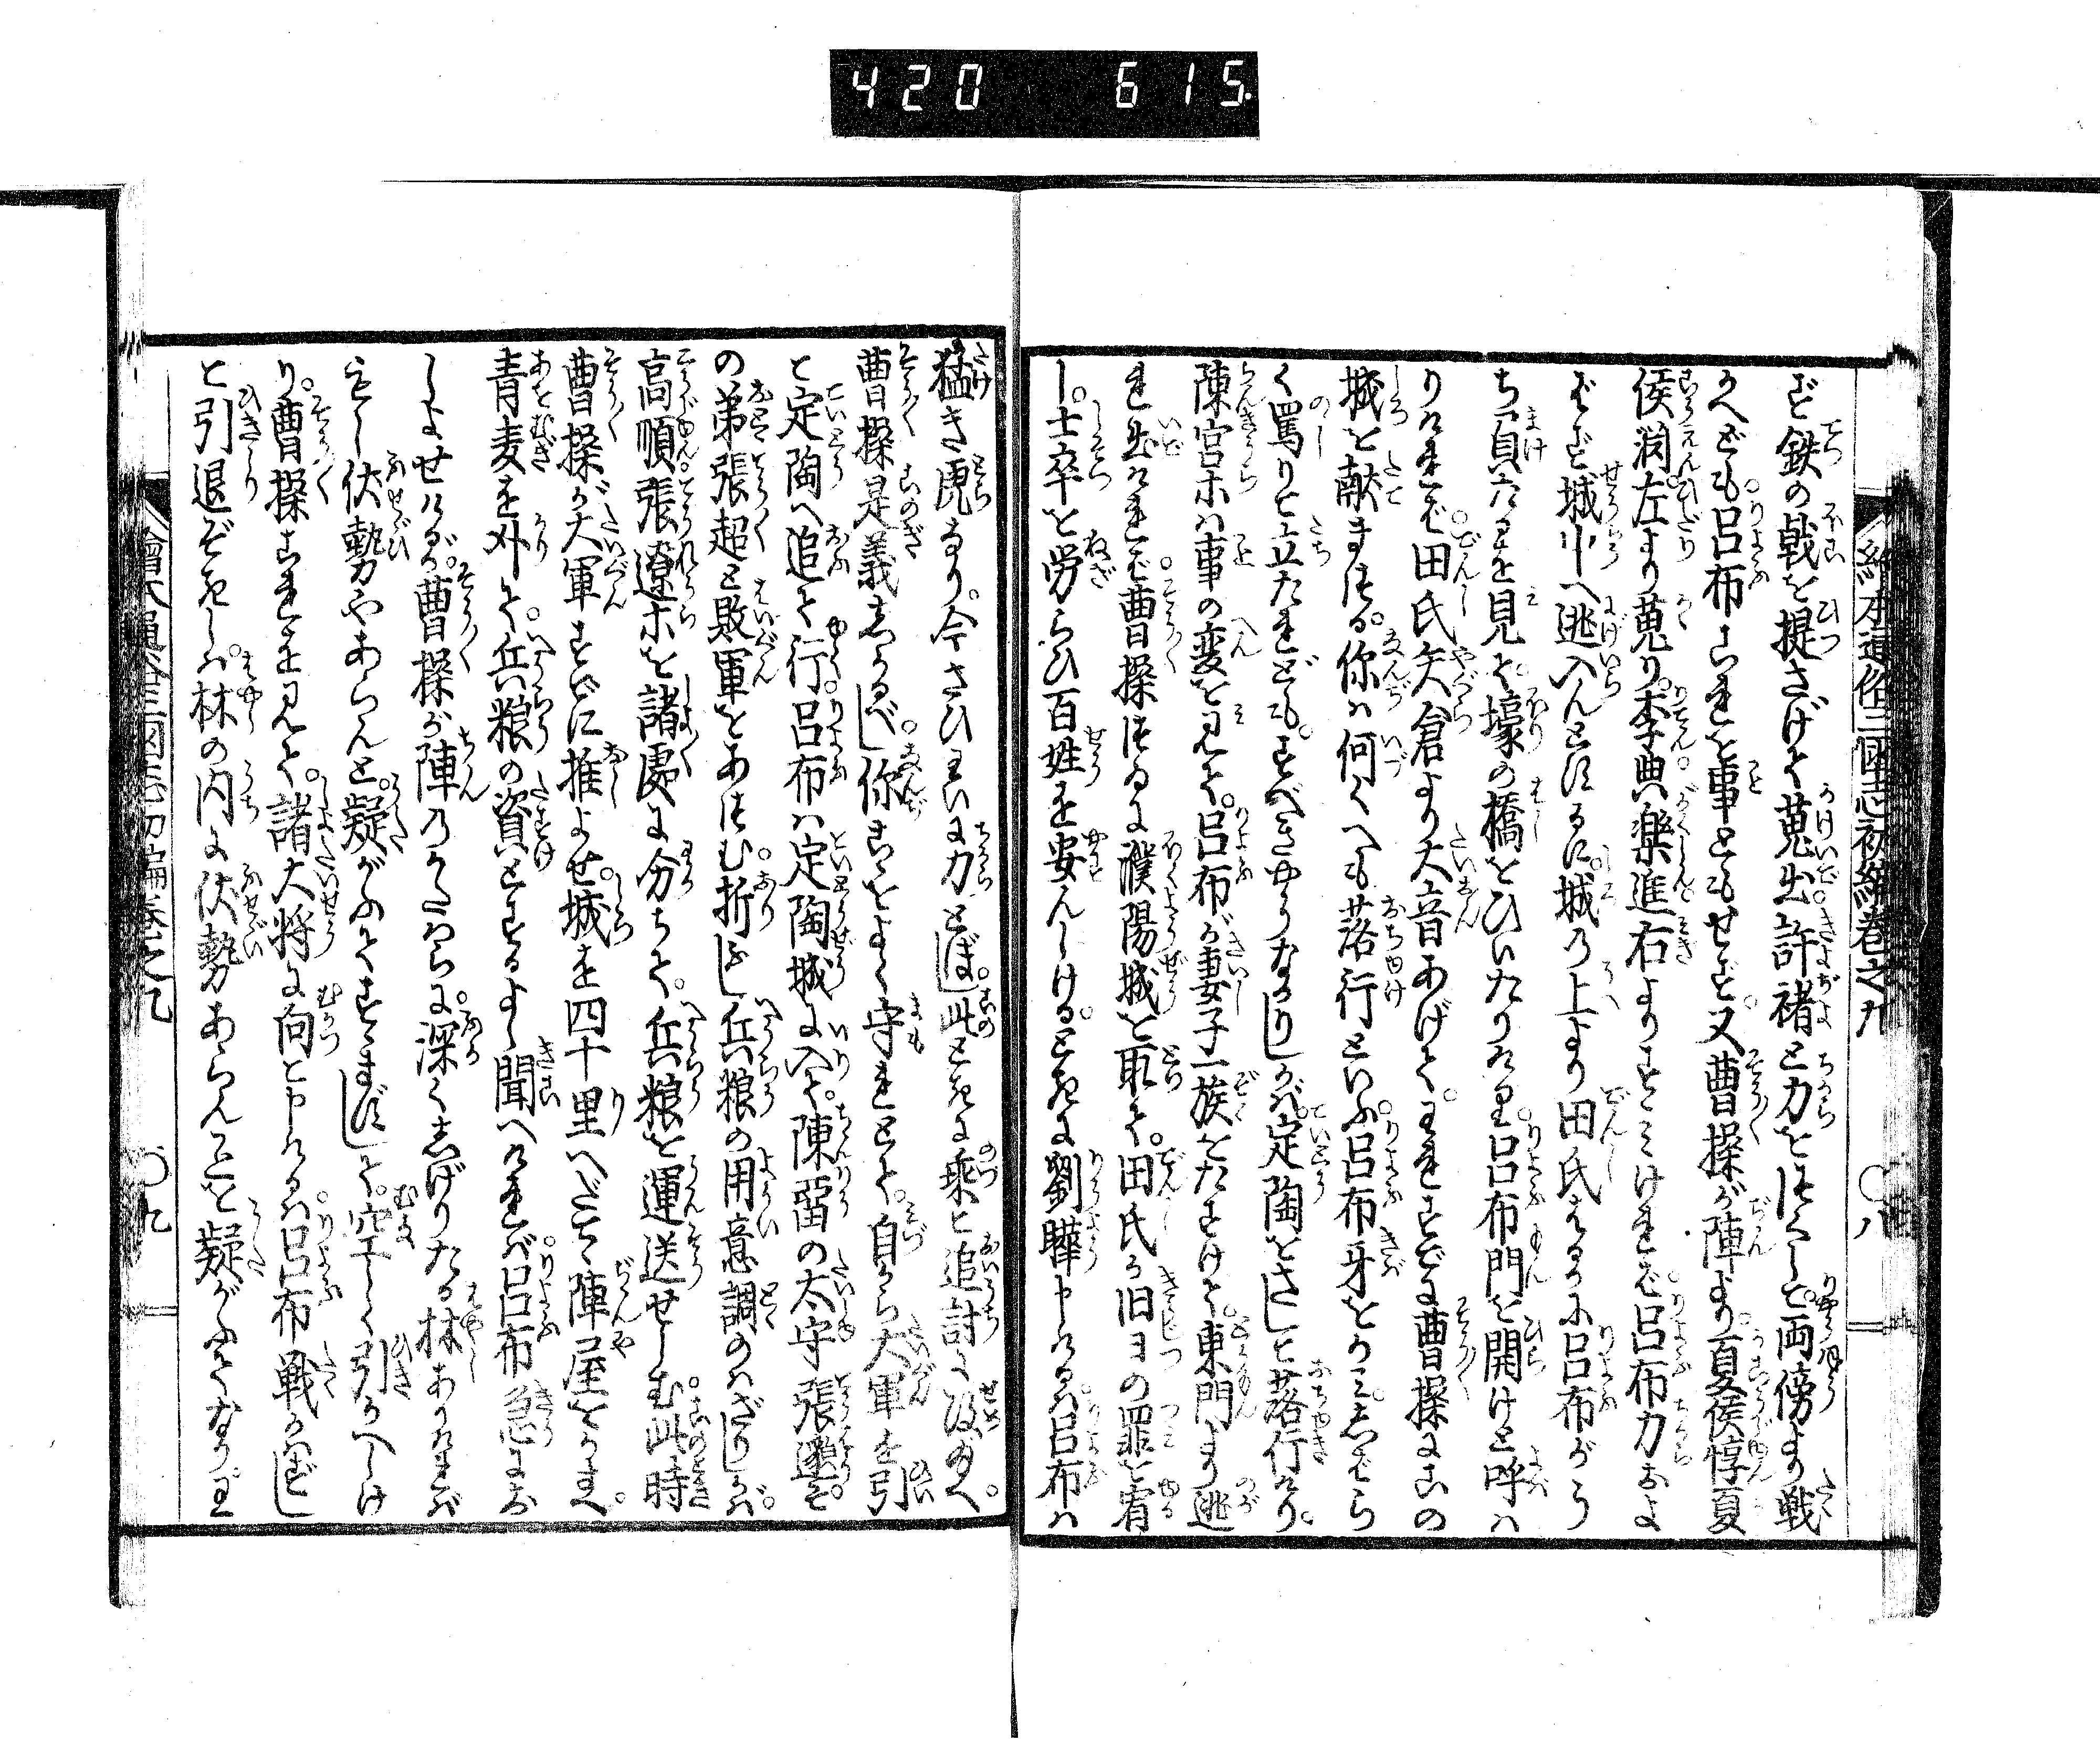 420 615
絵本通俗三国志初編巻之九 〇八
ど鉄の戟を提さげて蒐出許褚と力をつくして両傍より戦
かへども呂布これを事ともせず又曹操が陣より夏侯惇夏
侯淵左より蒐り李典楽進右よりすゝみければ呂布力およ
ばず城中へ逃入んとするに城の上より田氏はるかに呂布がう
ち負たるを見て壕の橋をひいたりける呂布門を開けと呼は
りければ田氏矢倉より大音あげてわれすでに曹操にこの
城を献まつる你は何くへも落行といふ呂布牙をかみしばら
く罵りて立たれどもすべきやうなかりしかば定陶をさして落行けり
陳宮等は事の変を見て呂布が妻子一族をたすけて東門より逃
れ出ければ曹操つゐに濮陽城を取て田氏が旧日の罪を宥
し士卒を労らひ百姓を安んじけるときに劉曄申けるは呂布は
猛き虎なり今さひわいに力とぼし此ときに乗て追討に攻給へ
曹操是義しかるべし你こゝをよく守れとて自から大軍を引
て定陶へ追て行呂布は定陶城に入て陳留の太守張邈そ
の弟張超と敗軍をあつむ折ふし兵粮の用意調のはざりしかば
高順張遼等を諸処に分ちて兵粮を運送せしむ此時
曹操が大軍すでに推よせ城を四十里へだてゝ陣屋をかまへ
青麦を刈て兵粮の資とするよし聞へければ呂布急にお
しよせけるが曹操が陣のかたはらに深くしげりたる林ありければ
もし伏勢やあらんと疑がふてすゝまずして空しく引かへしけ
り曹操これを見て諸大将に向て申けるは呂布戦かはずし
て引退ぞきしは林の内に伏勢あらんことを疑がふてなりわ
繪本通俗三國志初編巻之九 〇九